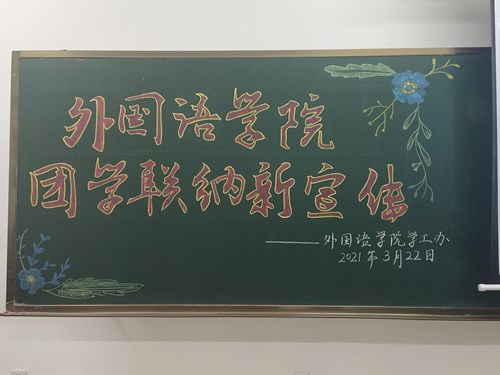 外国语学院
团学联纳新宣传
——外国语学院学工办
2021年3月22日